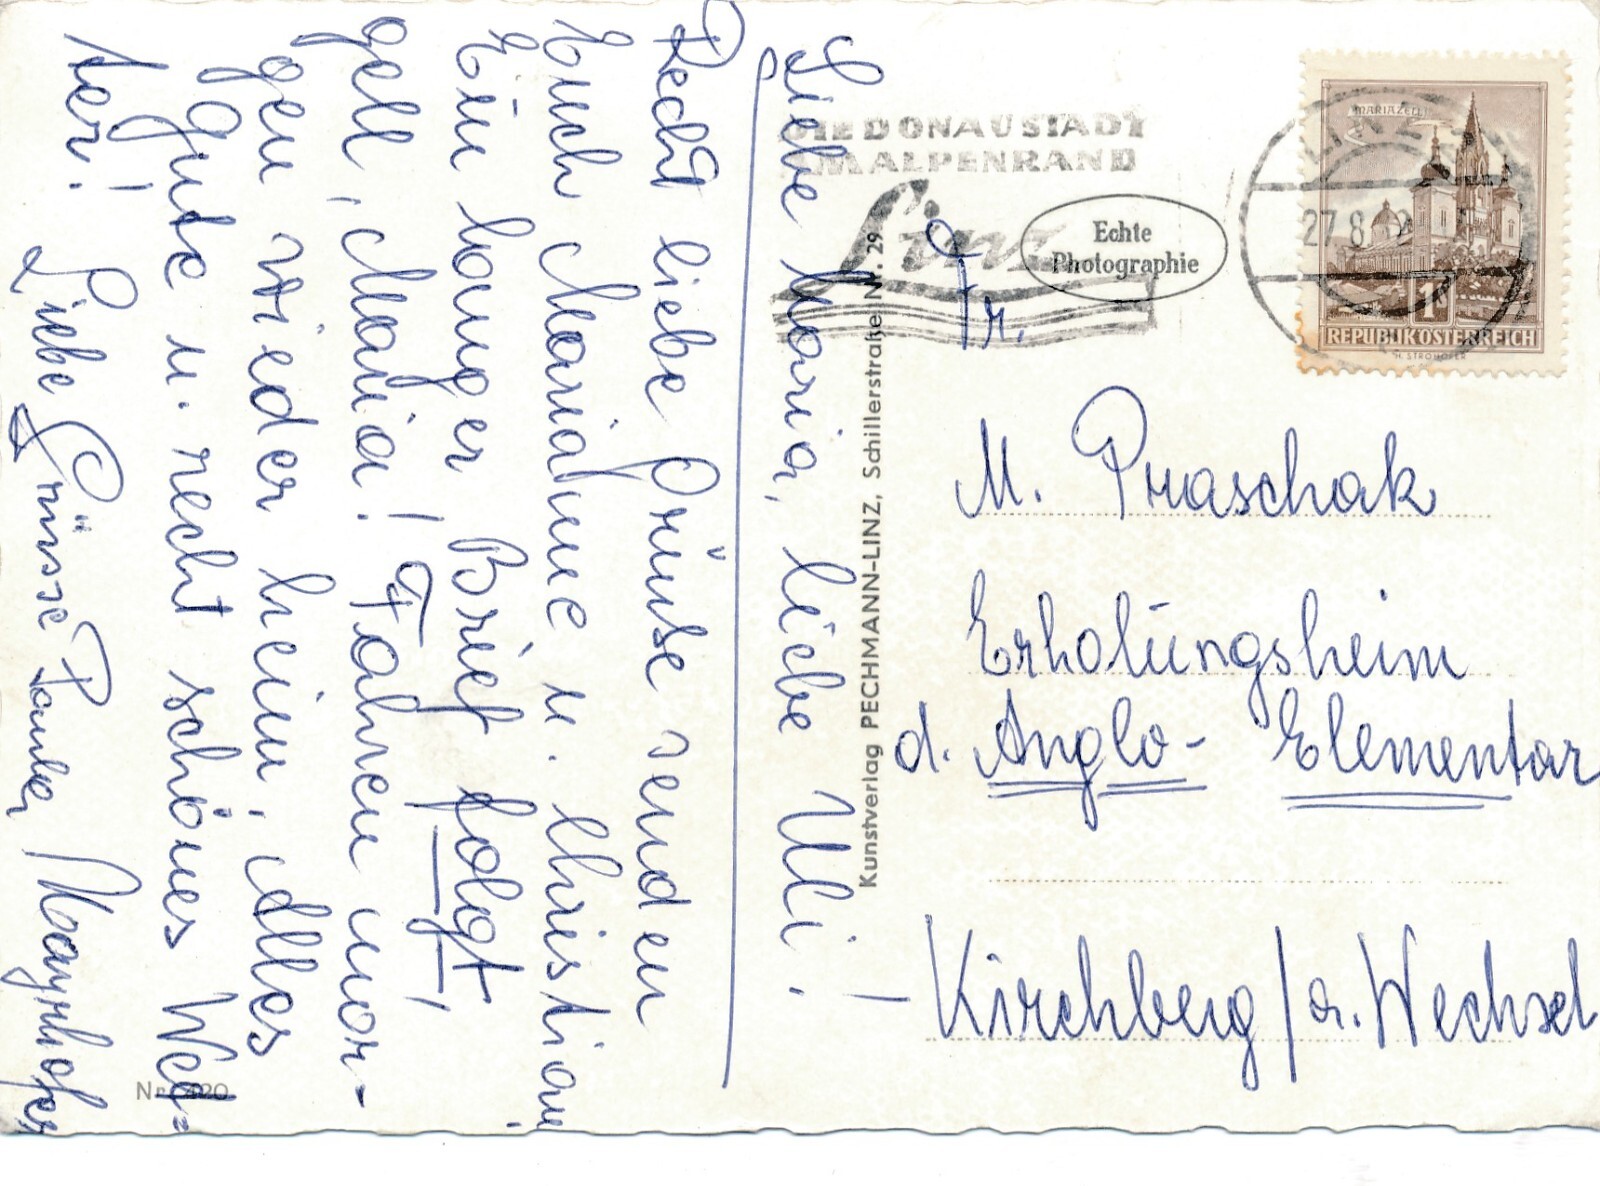 Liebe Maria, liebe Uli!
Recht liebe Grüße senden
Euch Marianne u. Christian.
Ein langer Brief folgt!
gell, Maria! Fahren mor-
gen wieder heim, Alles
Gute u. recht schönes Wet=
ter!
Liebe Grüsse Paula Mayrhofer
Nr. 420
Kunstverlag PECHMANN-LINZ, Schillerstraße Nr. 29
DIE DONAUSTADT
AM ALPENRAND
Linz
Echte
Photographie
LINZ
27.8.
MARIAZELL
1
REPUBLIK ÖSTERREICH
H. STROHOFER
Fr.
M. Praschak
Erholungsheim
d. Anglo-Elementar
Kirchberg/a. Wechsel